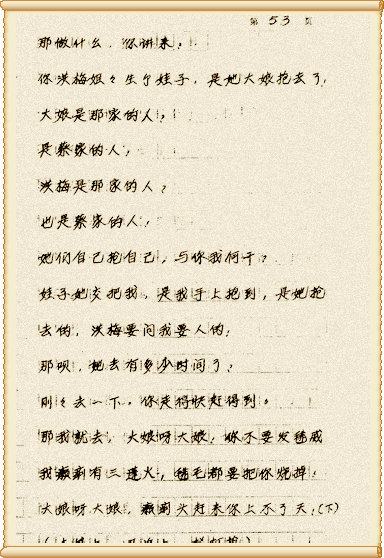 第 53 页
那做什么,你讲来:
你洪梅姐々生个娃子,是她大娘抱去了,
大娘是那家的人?
是蔡家的人,
洪梅是那家的人?
也是蔡家的人,
她们自己抱自己,与你我何干?
娃子她交把我,是我手上抱到,是她抱
去的,洪梅要问我要人的;
那呗,她去有多少时间了?
刚々去一下,你走得快赶得到。
那我就去,大娘呀大娘,你不要发 威
我癞痢有三 火, 毛都要把你烧掉!
大娘呀大娘,癞痢火赶来你上不了天;(下)